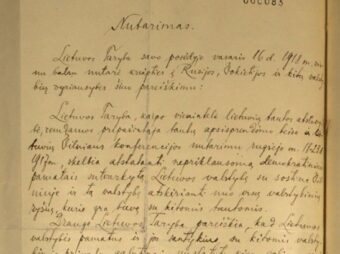 000085
Nutarimas.
Lietuvos Taryba savo posėdyje vasario 16 d. 1918 m. vie-
nu balsu nutarė kreiptis į Rusijos, Vokietijos ir kitų valsty-
bių vyriausybes šiuo pareiškimu:
Lietuvos Taryba, kaipo vienintelė lietuvių tautos atstovy-
bė, remdamos pripažintąja tautų apsisprendimo teise ir lie-
tuvių Vilniaus konferencijos nutarimu rugsėjo m. 18-23 d.
1917 m., skelbia atstatanti nepriklausomą demokratiniais
pamatais sutvarkytą Lietuvos valstybę su sostine Vil-
niuje ir tą valstybę atskirianti nuo visų valstybinių
ryšių, kurie yra buvę su kitomis tautomis.
Drauge Lietuvos Taryba pareiškia, kad Lietuvos
valstybės pamatus ir jos santykius su kitomis valsty-